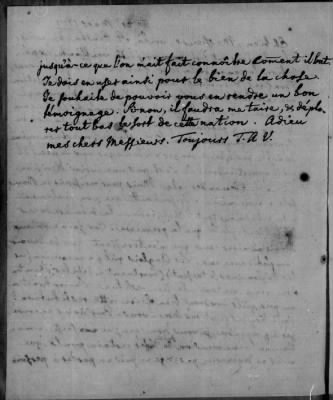 jusqu'à-ce que l'on m'ait fait connoître coment il but.
Je dois en user ainsi pour le bien de la chose.
Je souhaite de pouvoir vous en rendre un bon
témoignage. Sinon, il faudra me taire, & déplo-
rer tout bas le sort de cette nation. Adieu
mes chers Messieurs. Toujours T. A V.